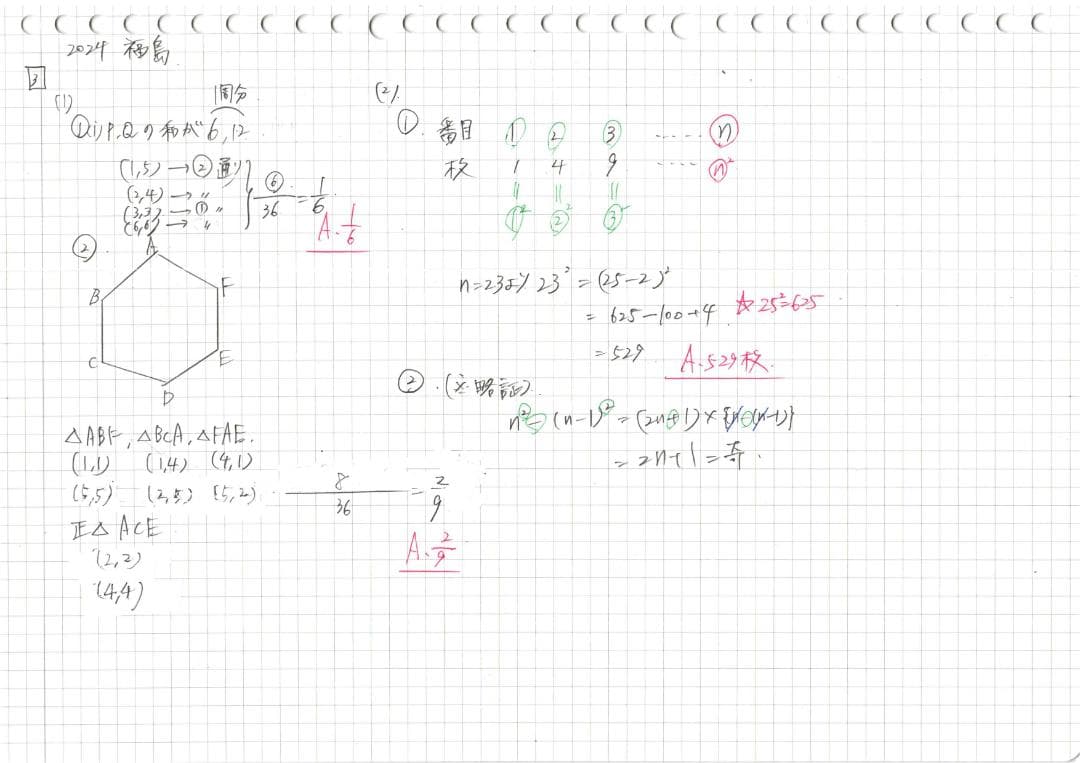 2024 福島
3
(1)
1周分
① i) P,Qの和が 6,12
(1,5) → ② 通り
(2,4) → 〃
(3,3) → ① 〃
(6,6) → 〃
⑥/36 = 1/6
A. 1/6
②
A
B
F
C
E
D
△ABF, △BCA, △FAE.
(1,1) (1,4) (4,1)
(5,5) (2,5) (5,2)
8/36 = 2/9
正△ ACE
A. 2/9
(2,2)
(4,4)
(2)
① 番目 ① ② ③ …… ⓝ
枚 1 4 9 …… ⓝ²
|| || ||
①² ②² ③²
n=23より 23² = (25-2)²
= 625-100+4 ☆ 25²=625
= 529 A. 529枚.
② (※略証).
n² - (n-1)² = (2n+1)×{n-(n-1)}
= 2n+1 = 奇.